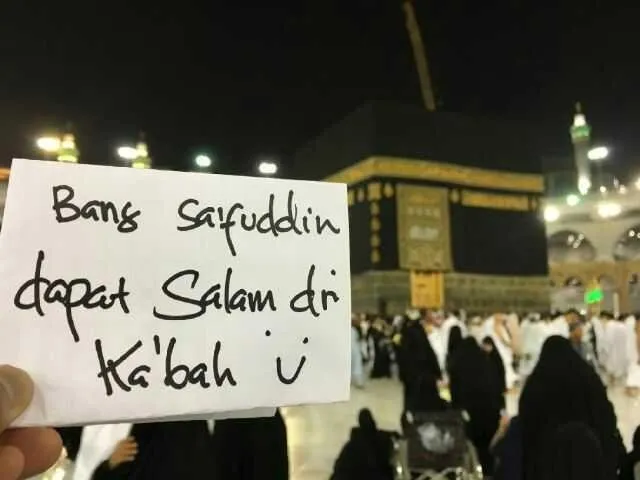 Bang Saifuddin
dapat Salam dri
Ka'bah